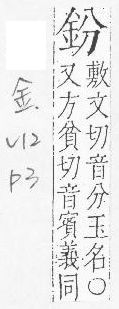 鈖
敷文切音分玉名○
又方貧切音賓義同
金
V12
P3